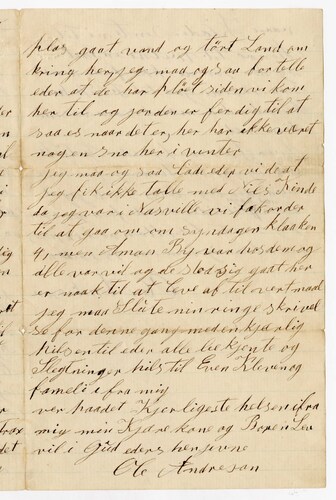 plas gaat vand og tört Land om
kring her, jeg maa og saa fortelle
eder at de har plöét siden vi kom
her til og jorden er ferdig til at
saa es naar det er, her har ikke været
nogen sno her i venter
jeg maa og saa lade eder vide at
jeg fik ikke talle med Nils
da jeg var i Nasville vi fek order
til at gaa om om Syndagen Klaaken
4, men Aman By var hos dene og
alle var vel og de slog sig gaat her
er naak til at leve af til vert maal
jeg maa Slute min ringe skrivel
se for denne gang med en kjærlig
hilsen til eder alle bekjente og
Slegtninger hils til Even Kleven og
fameli ifra mig
ver haadet Kjerligeste helsen ifra
mig min Kjære kone og Boren Lev
vel i Gud eders hen givne
Ole Andreson